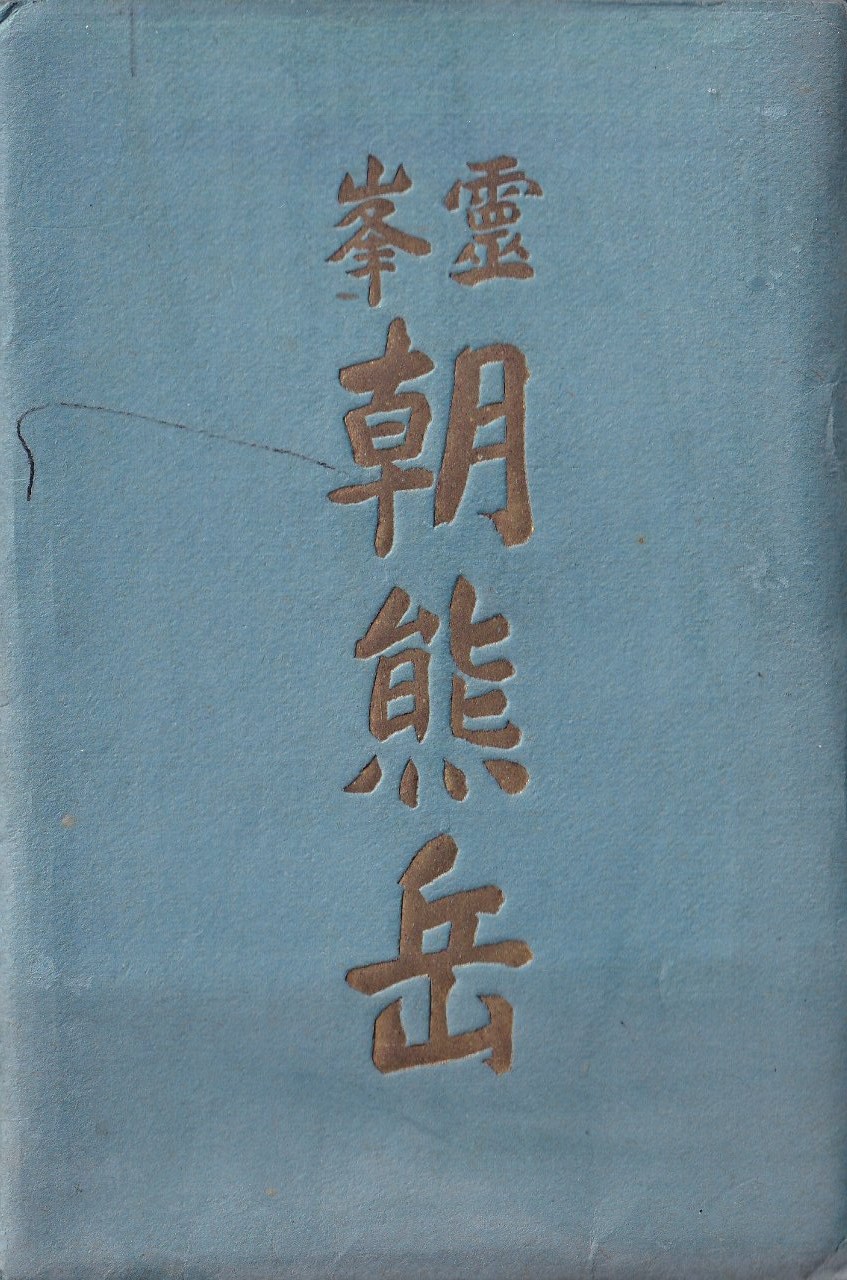 靈峯
朝熊岳